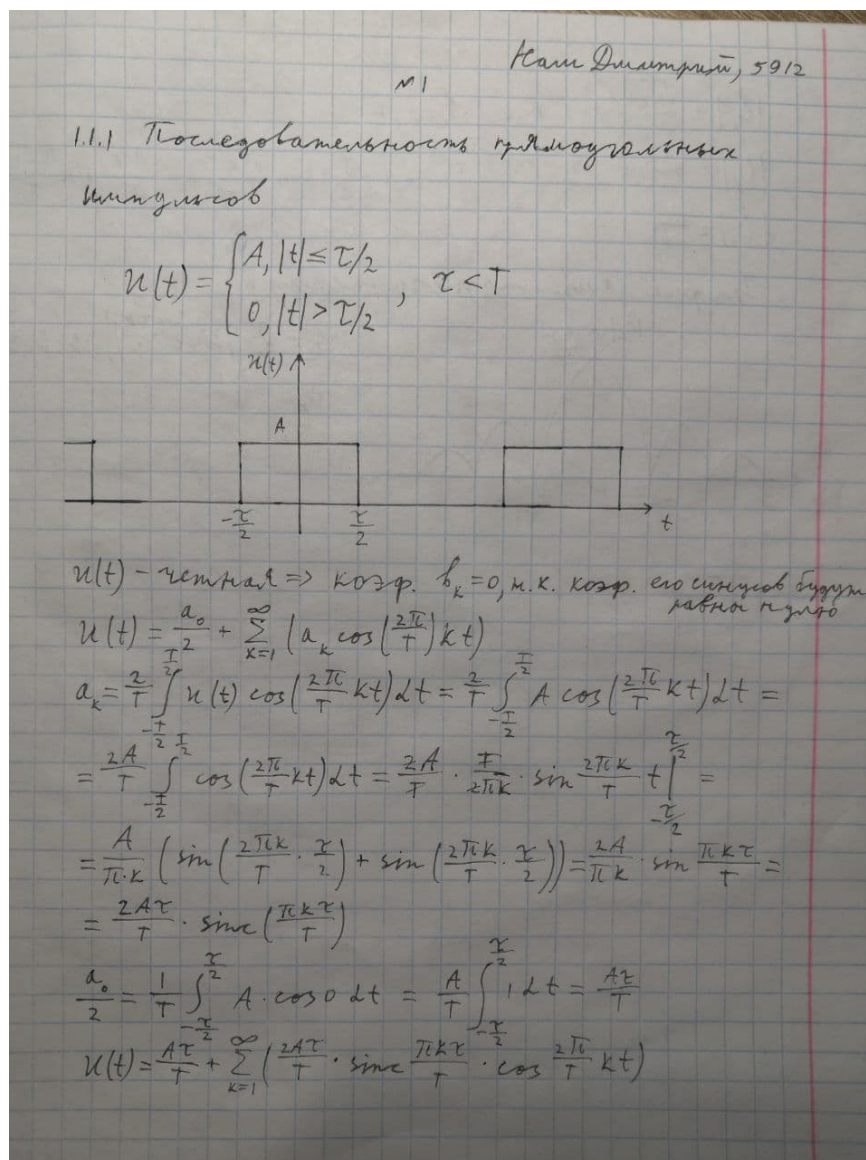 Нам Дмитрий, 5912
№1
1.1.1 Последовательность прямоугольных
импульсов
u(t) = { A, |t| ≤ τ/2
0, |t| > τ/2 , τ < T
u(t)
A
-τ/2 τ/2 t
u(t) - четная => коэф. b_k = 0, т.к. коэф. его синусов будут
равны нулю
u(t) = a_0/2 + ∑_{k=1}^{∞} (a_k cos(2π/T) kt)
a_k = 2/T ∫_{-T/2}^{T/2} u(t) cos(2π/T kt) dt = 2/T ∫_{-T/2}^{T/2} A cos(2π/T kt) dt =
= 2A/T ∫_{-T/2}^{T/2} cos(2π/T kt) dt = 2A/T · T/2πk · sin 2πk/T t |_{-τ/2}^{τ/2} =
= A/π·k (sin(2πk/T · τ/2) + sin(2πk/T · τ/2)) = 2A/πk · sin πkτ/T =
= 2Aτ/T · sinc(πkτ/T)
a_0/2 = 1/T ∫_{-τ/2}^{τ/2} A · cos 0 dt = A/T ∫_{-τ/2}^{τ/2} 1 dt = Aτ/T
u(t) = Aτ/T + ∑_{k=1}^{∞} (2Aτ/T · sinc πkτ/T · cos 2π/T kt)